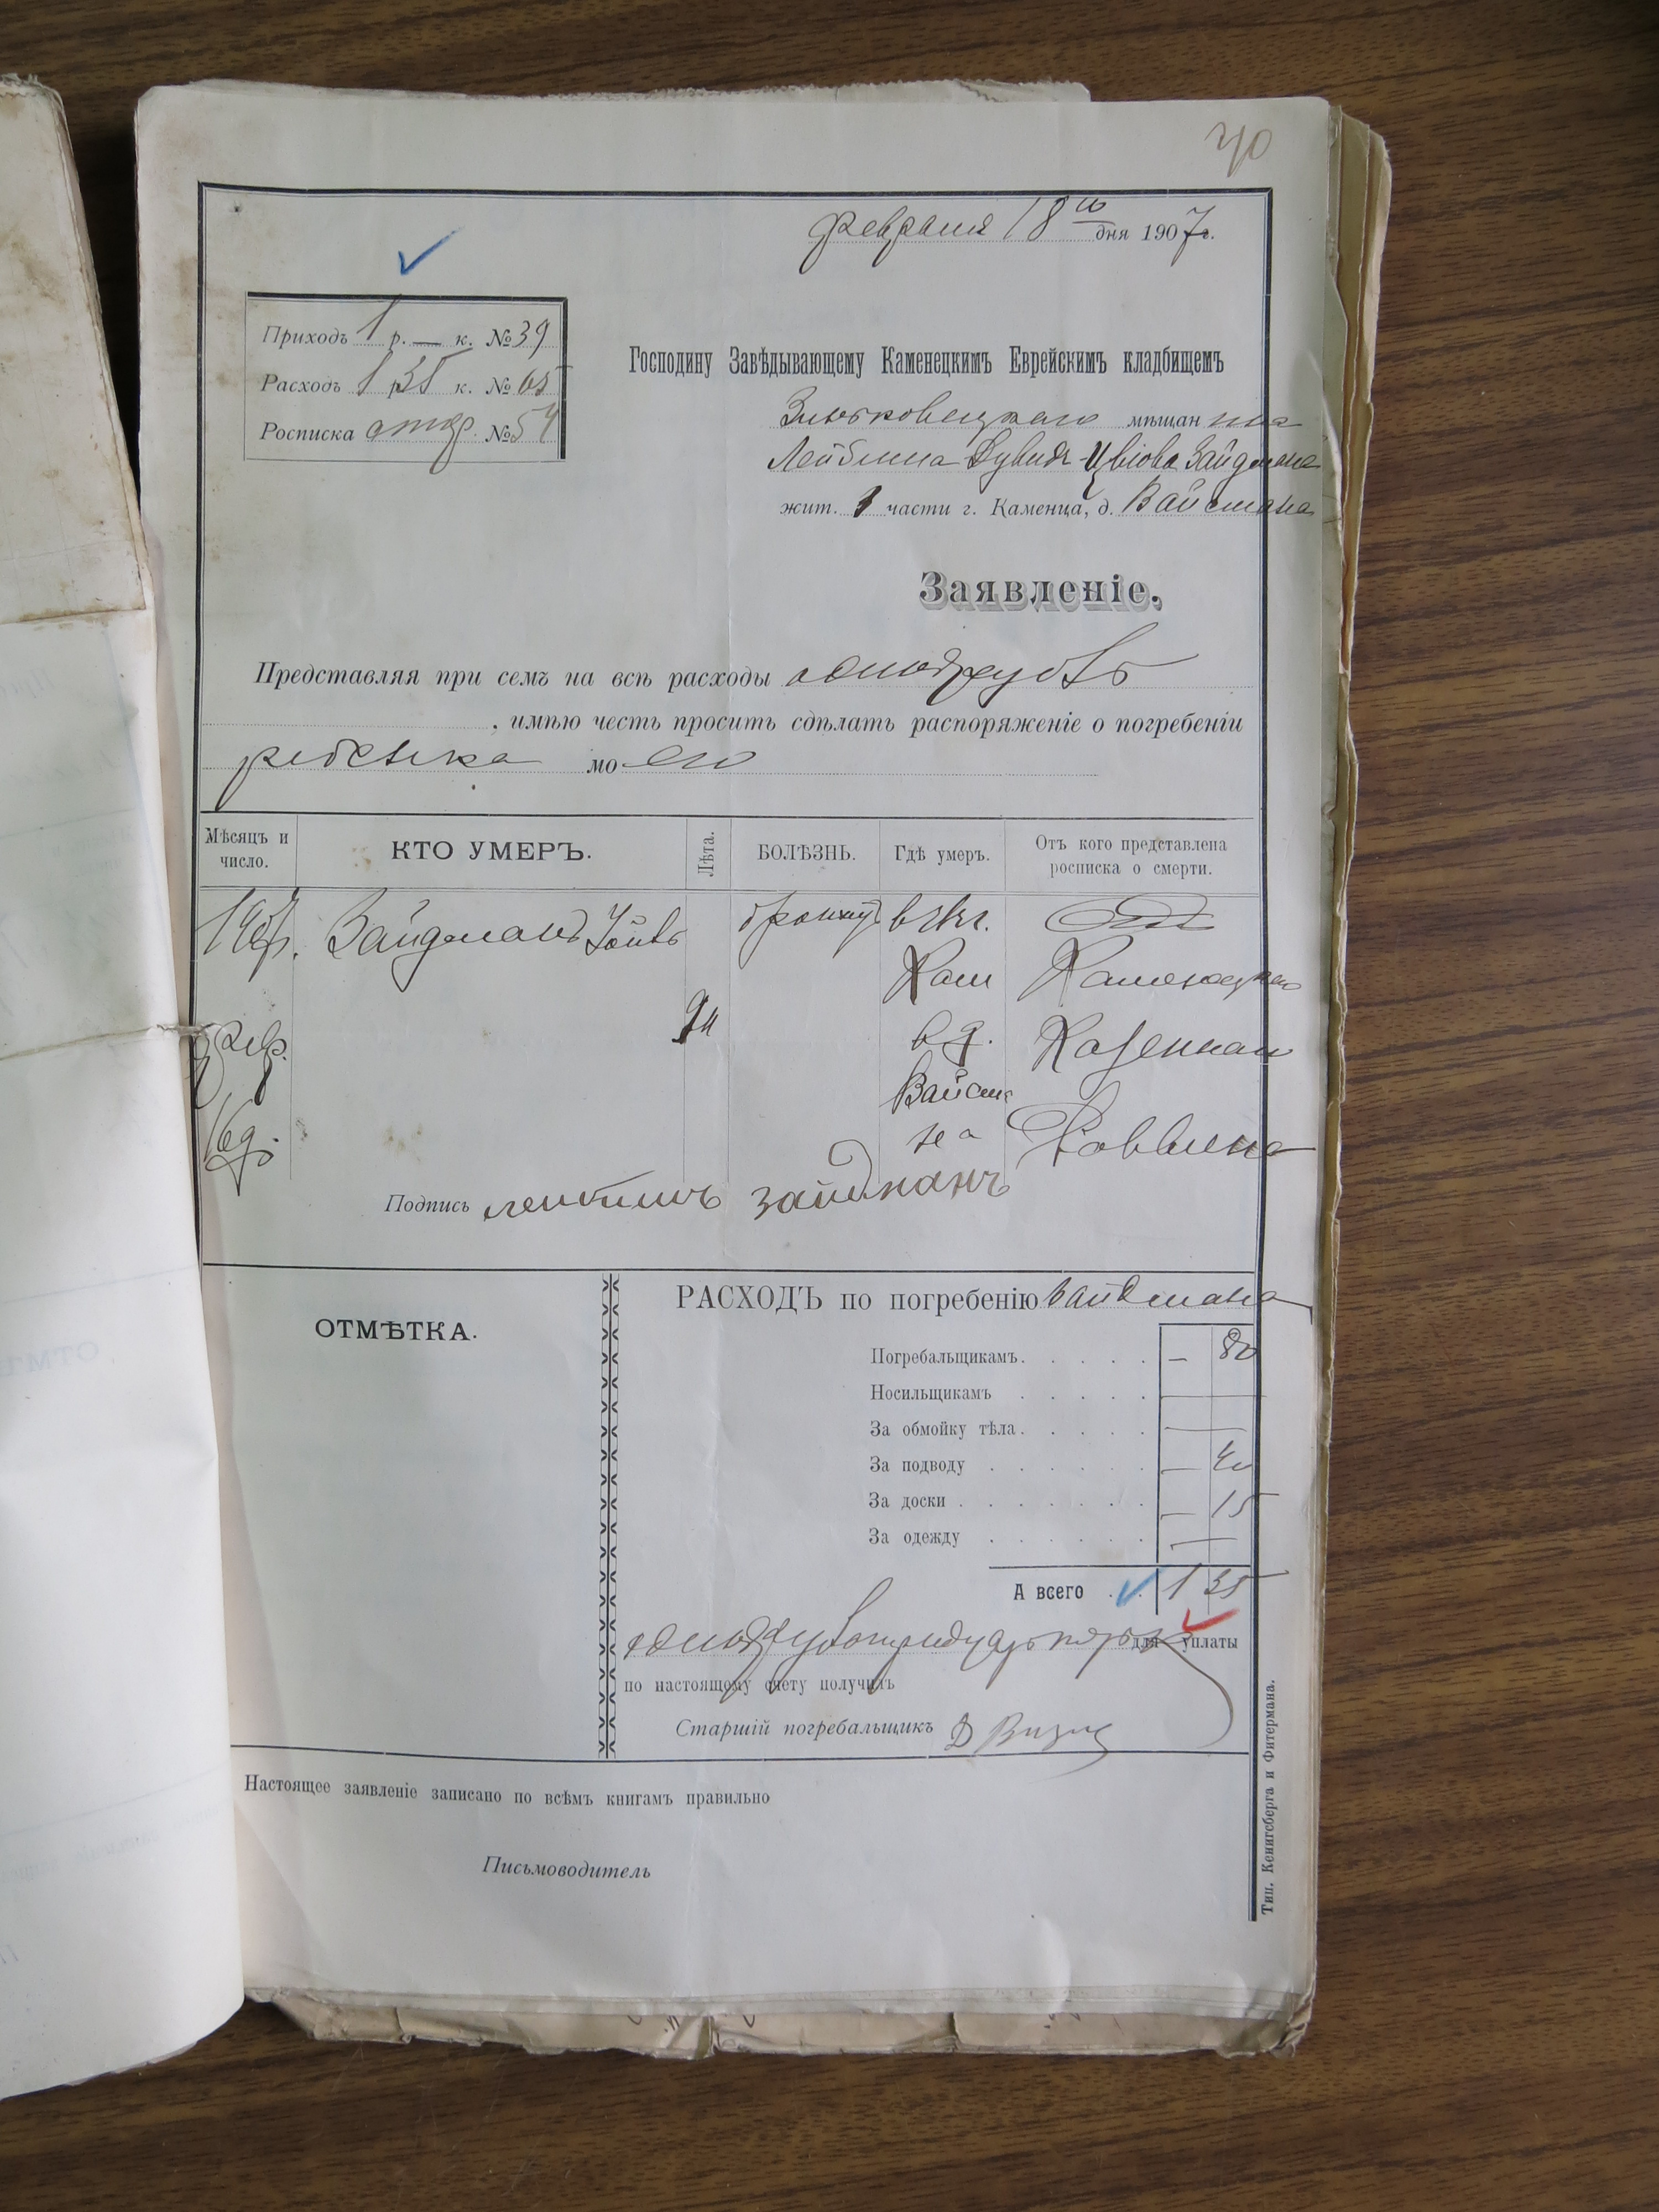 40
февраля 18го дня 1907г.
Приходъ 1 р. — к. № 39
Расходъ 1 р 35 к. № 65
Росписка № 54
Господину Завѣдывающему Каменецкимъ Еврейскимъ кладбищемъ
Зиньковецкаго мѣщанина
Лейбиша Дувидъ-Цвіова Зайдмана
жит. части г. Каменца, д. Вайсмана
Заявленіе.
Представляя при семъ на всѣ расходы одинъ рубль
, имѣю честь просить сдѣлать распоряженіе о погребеніи
ребенка моего
Мѣсяцъ и число. КТО УМЕРЪ. Лѣта. БОЛѢЗНЬ. Гдѣ умеръ. Отъ кого представлена росписка о смерти.
Зайдманъ в г.
Кам Каменецкаго
фев. в д. Казеннаго
Вайсма
на Раввина
Подпись лейбишъ зайдманъ
ОТМѢТКА.
РАСХОДЪ по погребенію Зайдмана
Погребальщикамъ. . . . . — 80
Носильщикамъ . . . . —
За обмойку тѣла. . . . . —
За подводу . . . . . — 40
За доски . . . . . . — 15
За одежду . . . . . —
А всего . . 1 35
один рубль тридцать пять к для уплаты
по настоящему счету получилъ
Старшій погребальщикъ Д
Настоящее заявленіе записано по всѣмъ книгамъ правильно
Письмоводитель
Тип. Кенигсберга и Фитермана.